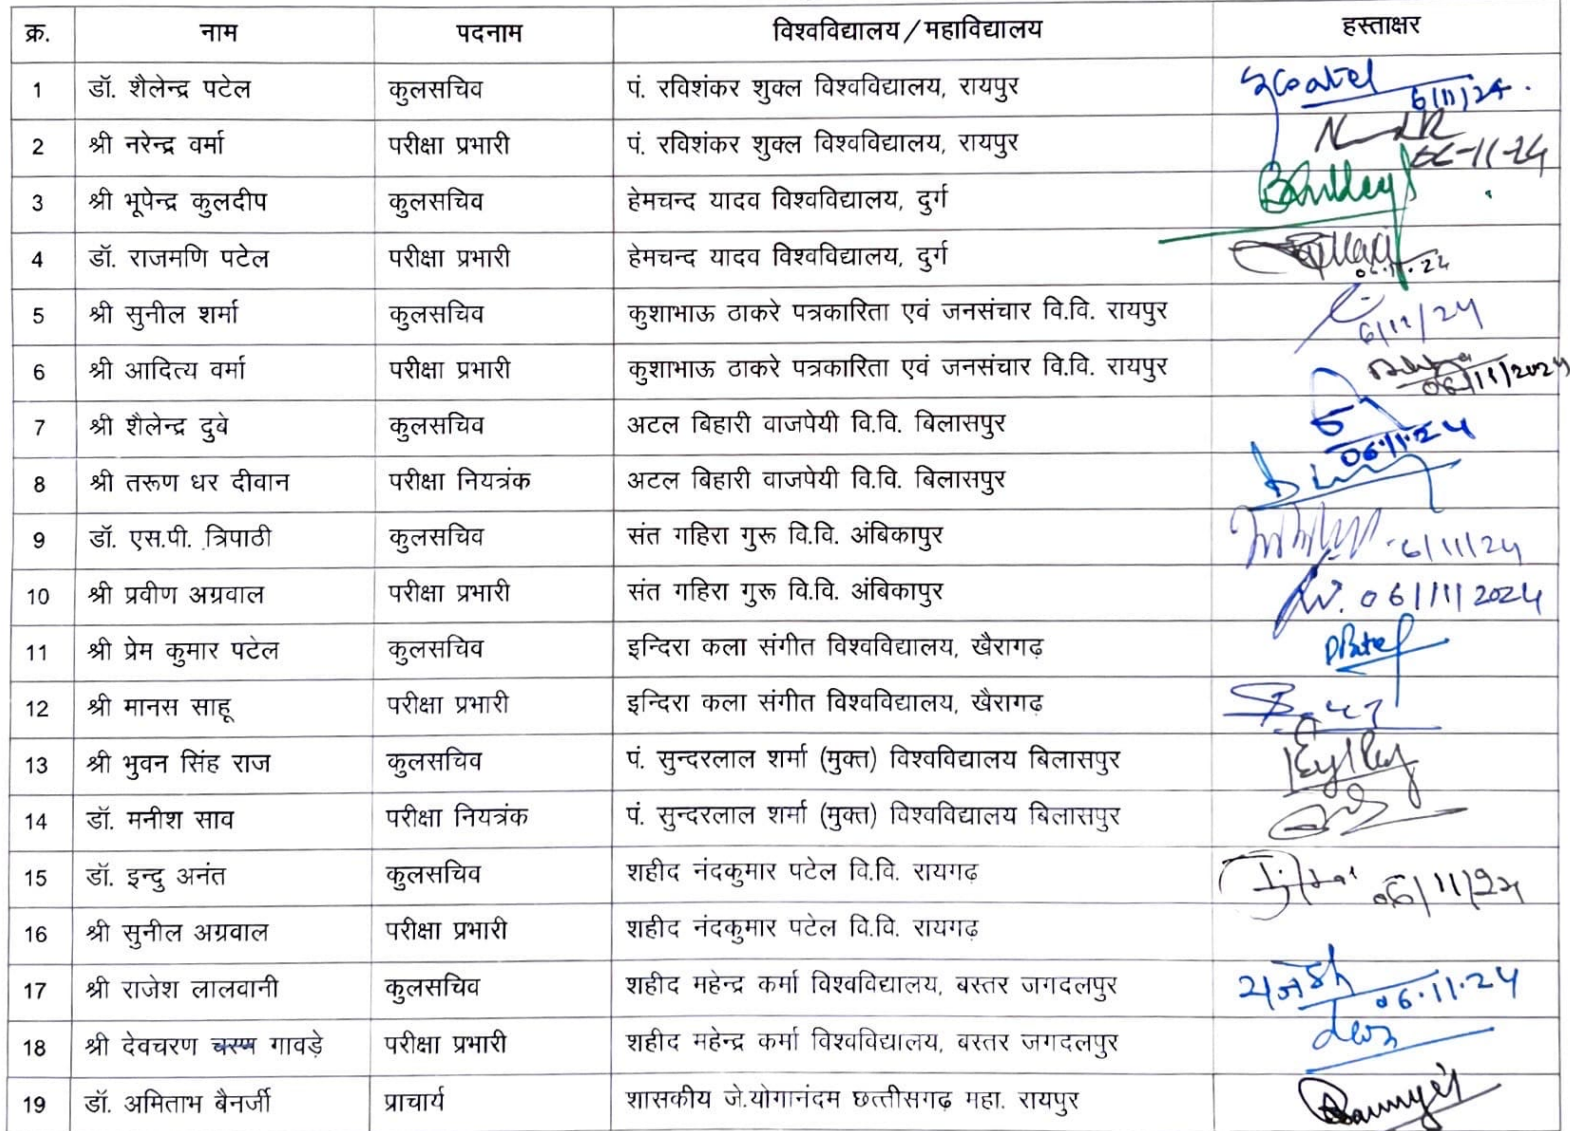 क्र. नाम पदनाम विश्वविद्यालय/महाविद्यालय हस्ताक्षर
1 डॉ. शैलेन्द्र पटेल कुलसचिव पं. रविशंकर शुक्ल विश्वविद्यालय, रायपुर 6/11/24.
2 श्री नरेन्द्र वर्मा परीक्षा प्रभारी पं. रविशंकर शुक्ल विश्वविद्यालय, रायपुर 06-11-24
3 श्री भूपेन्द्र कुलदीप कुलसचिव हेमचन्द यादव विश्वविद्यालय, दुर्ग
4 डॉ. राजमणि पटेल परीक्षा प्रभारी हेमचन्द यादव विश्वविद्यालय, दुर्ग
5 श्री सुनील शर्मा कुलसचिव कुशाभाऊ ठाकरे पत्रकारिता एवं जनसंचार वि.वि. रायपुर 6/11/24
6 श्री आदित्य वर्मा परीक्षा प्रभारी कुशाभाऊ ठाकरे पत्रकारिता एवं जनसंचार वि.वि. रायपुर 06/11/2024
7 श्री शैलेन्द्र दुबे कुलसचिव अटल बिहारी वाजपेयी वि.वि. बिलासपुर 06.11.24
8 श्री तरूण धर दीवान परीक्षा नियत्रंक अटल बिहारी वाजपेयी वि.वि. बिलासपुर
9 डॉ. एस.पी. त्रिपाठी कुलसचिव संत गहिरा गुरू वि.वि. अंबिकापुर 6/11/24
10 श्री प्रवीण अग्रवाल परीक्षा प्रभारी संत गहिरा गुरू वि.वि. अंबिकापुर 06/11/2024
11 श्री प्रेम कुमार पटेल कुलसचिव इन्दिरा कला संगीत विश्वविद्यालय, खैरागढ़ PPatel
12 श्री मानस साहू परीक्षा प्रभारी इन्दिरा कला संगीत विश्वविद्यालय, खैरागढ़
13 श्री भुवन सिंह राज कुलसचिव पं. सुन्दरलाल शर्मा (मुक्त) विश्वविद्यालय बिलासपुर
14 डॉ. मनीश साव परीक्षा नियत्रंक पं. सुन्दरलाल शर्मा (मुक्त) विश्वविद्यालय बिलासपुर
15 डॉ. इन्दु अनंत कुलसचिव शहीद नंदकुमार पटेल वि.वि. रायगढ़ 06/11/24
16 श्री सुनील अग्रवाल परीक्षा प्रभारी शहीद नंदकुमार पटेल वि.वि. रायगढ़
17 श्री राजेश लालवानी कुलसचिव शहीद महेन्द्र कर्मा विश्वविद्यालय, बस्तर जगदलपुर राजेश 06.11.24
18 श्री देवचरण चरण गावड़े परीक्षा प्रभारी शहीद महेन्द्र कर्मा विश्वविद्यालय, बस्तर जगदलपुर
19 डॉ. अमिताभ बैनर्जी प्राचार्य शासकीय जे.योगानंदम छत्तीसगढ़ महा. रायपुर